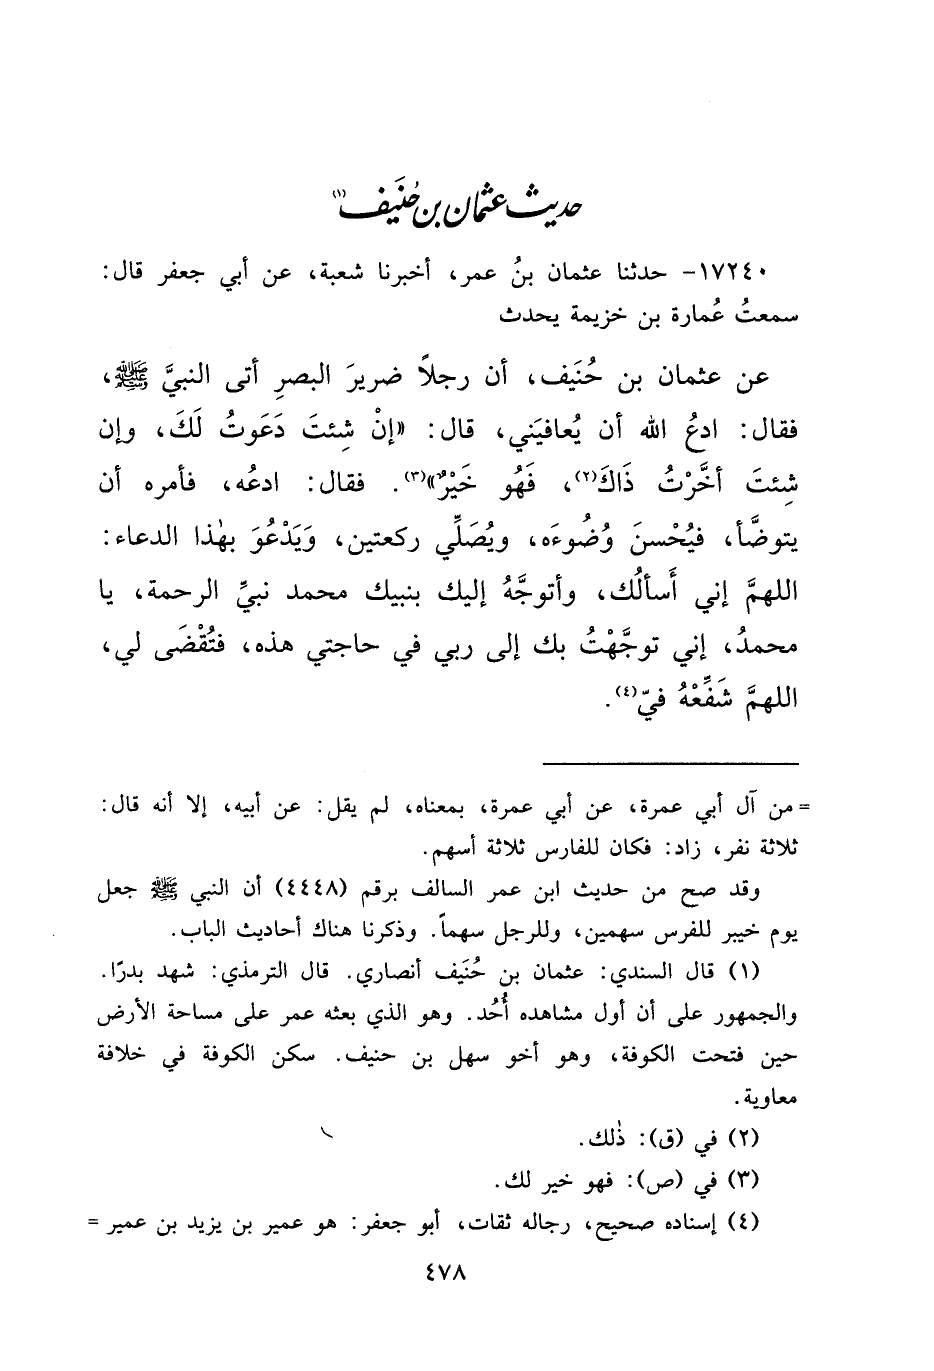 حديث عثمان بن حُنَيف(١)
١٧٢٤٠- حدثنا عثمان بنُ عمر، أخبرنا شعبة، عن أبي جعفر قال:
سمعتُ عُمارة بن خزيمة يحدث
عن عثمان بن حُنَيف، أن رجلاً ضريرَ البصرِ أتى النبيَّ ﷺ،
فقال: ادعُ الله أن يُعافيَني، قال: «إنْ شِئتَ دَعَوتُ لَكَ، وإن
شِئتَ أخَّرْتُ ذَاكَ(٢)، فَهُو خَيْرٌ»(٣). فقال: ادعُه، فأمره أن
يتوضَّأ، فيُحْسنَ وُضُوءَه، ويُصَلِّي ركعتين، وَيَدْعُوَ بهٰذا الدعاء:
اللهمَّ إني أَسألُك، وأتوجَّهُ إليك بنبيك محمد نبيِّ الرحمة، يا
محمدُ، إني توجَّهْتُ بك إلى ربي في حاجتي هذه، فتُقْضَى لي،
اللهمَّ شَفِّعْهُ فيّ(٤).
= من آل أبي عمرة، عن أبي عمرة، بمعناه، لم يقل: عن أبيه، إلا أنه قال:
ثلاثة نفر، زاد: فكان للفارس ثلاثة أسهم.
وقد صح من حديث ابن عمر السالف برقم (٤٤٤٨) أن النبي ﷺ جعل
يوم خيبر للفرس سهمين، وللرجل سهماً. وذكرنا هناك أحاديث الباب.
(١) قال السندي: عثمان بن حُنَيف أنصاري. قال الترمذي: شهد بدرًا.
والجمهور على أن أول مشاهده أُحُد. وهو الذي بعثه عمر على مساحة الأرض
حين فتحت الكوفة، وهو أخو سهل بن حنيف. سكن الكوفة في خلافة
معاوية.
(٢) في (ق): ذٰلك.
(٣) في (ص): فهو خير لك.
(٤) إسناده صحيح، رجاله ثقات، أبو جعفر: هو عمير بن يزيد بن عمير =
٤٧٨